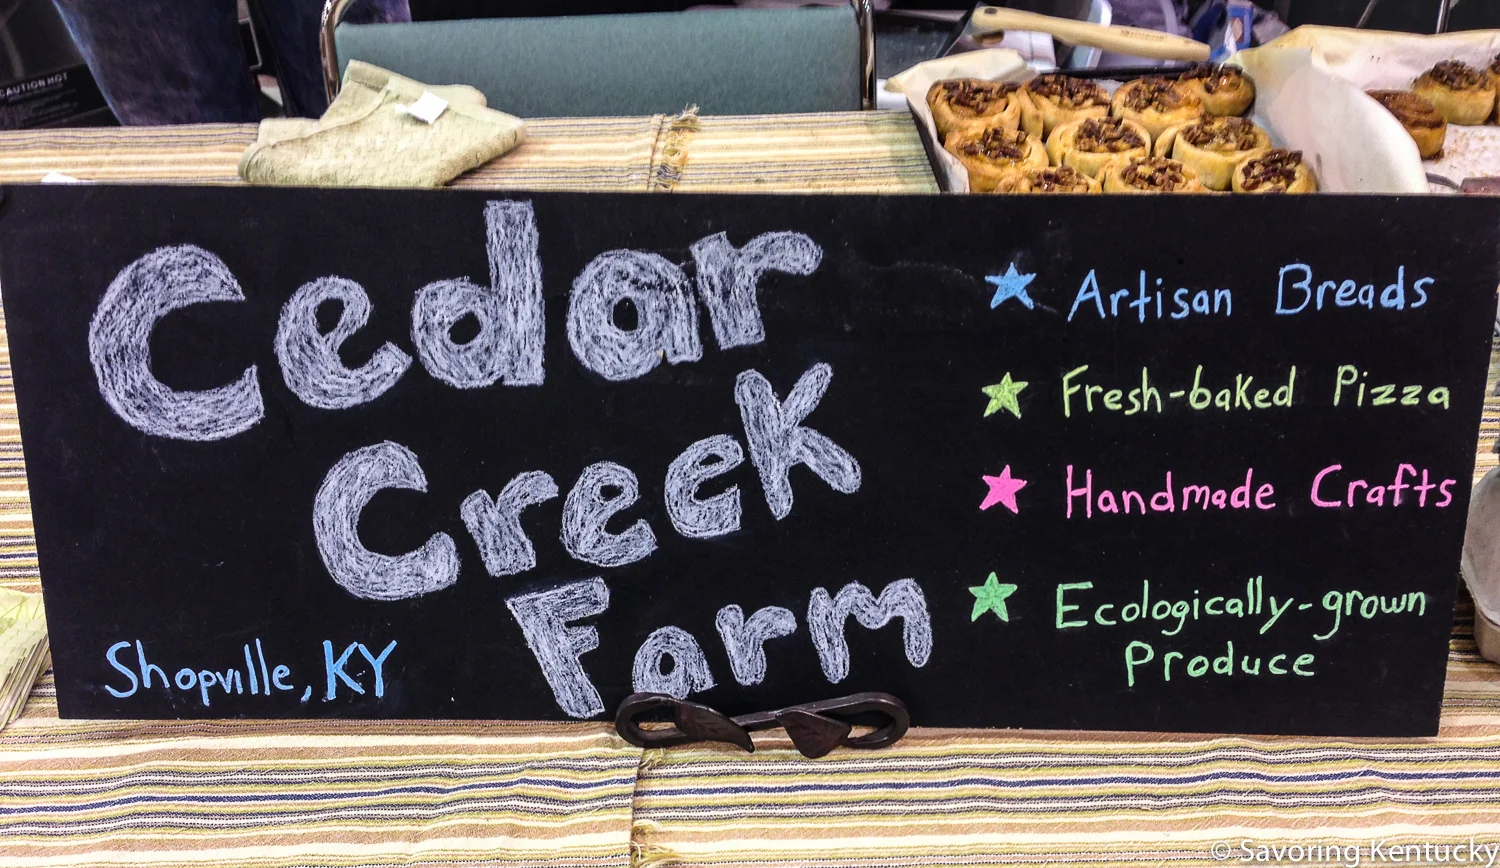 CAUTION HOT
Cedar
Creek
Farm
Shopville, KY
Artisan Breads
Fresh-baked Pizza
Handmade Crafts
Ecologically-grown
Produce
© Savoring Kentucky